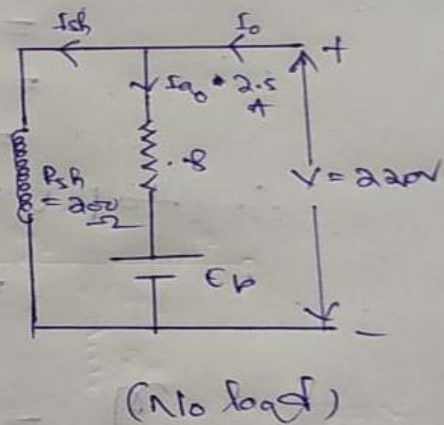 Ish
I₀
+
Ia₀ = 2.5
A
.8
Rsh
= 200
Ω
V = 220V
Eb
-
(No load)